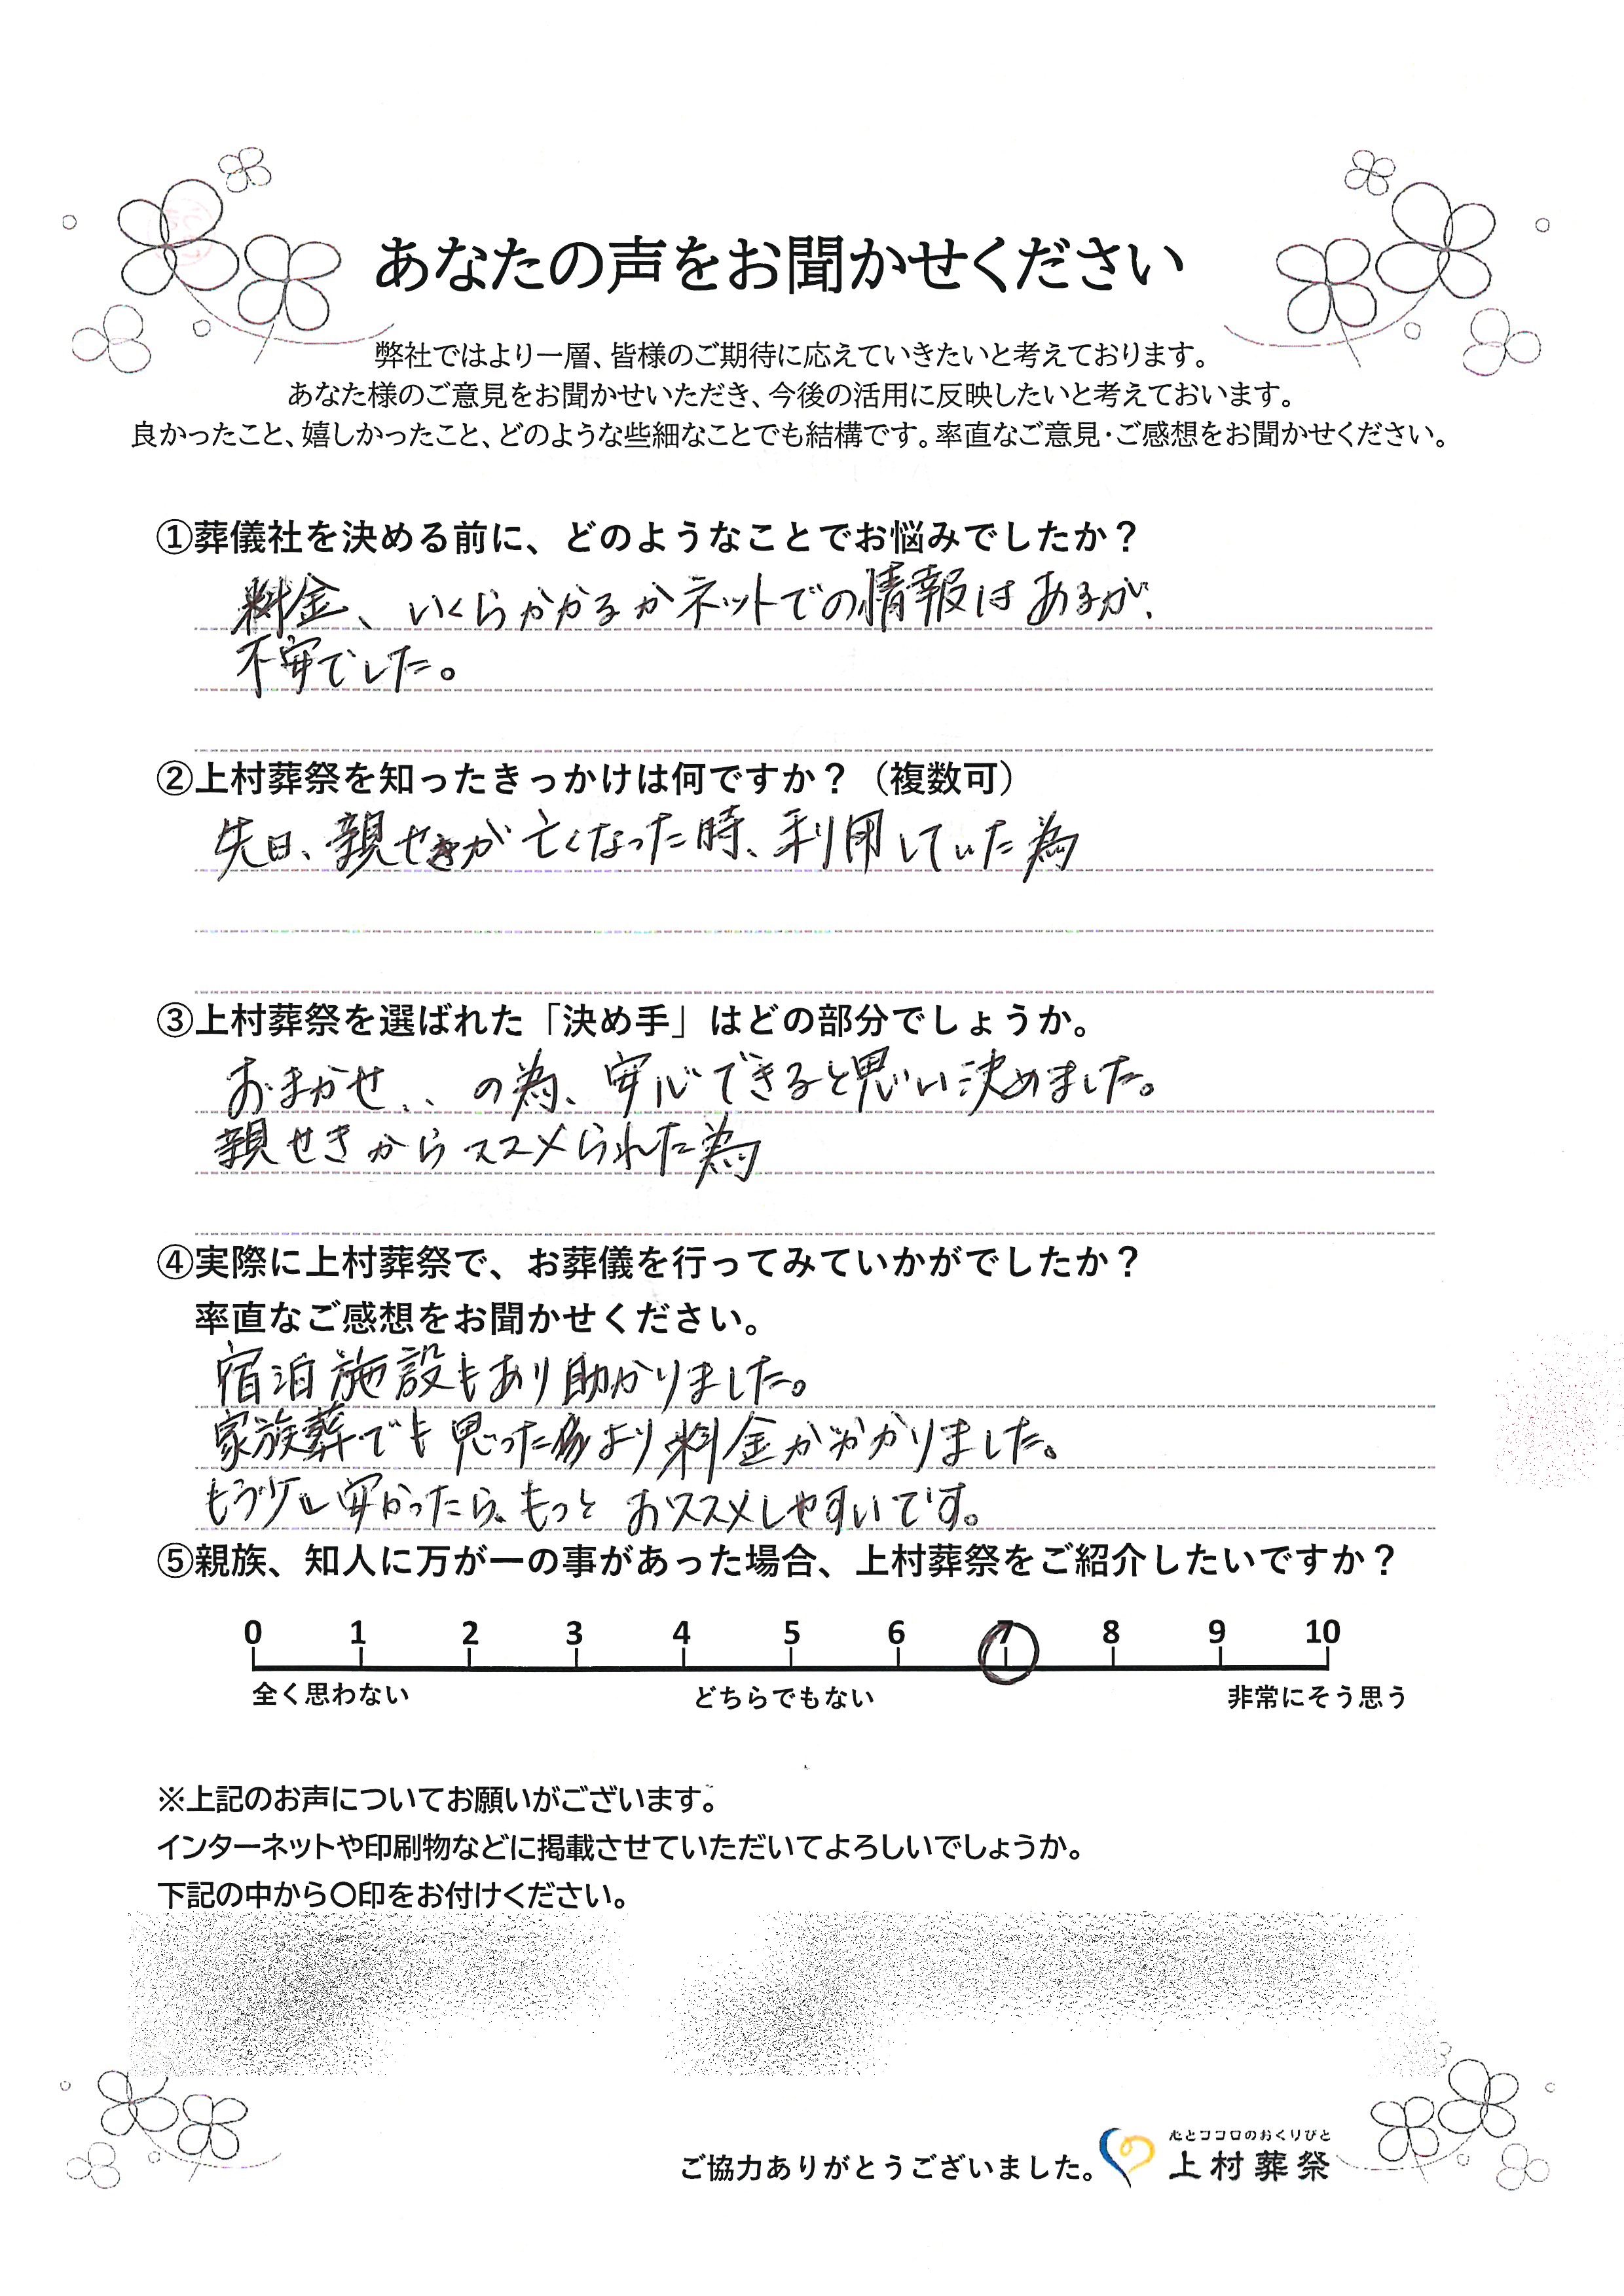 あなたの声をお聞かせください
弊社ではより一層、皆様のご期待に応えていきたいと考えております。
あなた様のご意見をお聞かせいただき、今後の活用に反映したいと考えておいます。
良かったこと、嬉しかったこと、どのような些細なことでも結構です。率直なご意見・ご感想をお聞かせください。
①葬儀社を決める前に、どのようなことでお悩みでしたか？
料金、いくらかかるかネットでの情報はあるが、
不安でした。
②上村葬祭を知ったきっかけは何ですか？（複数可）
先日、親せきが亡くなった時、利用していた為
③上村葬祭を選ばれた「決め手」はどの部分でしょうか。
おまかせ．．の為、安心できると思い決めました。
親せきからススメられた為
④実際に上村葬祭で、お葬儀を行ってみていかがでしたか？
率直なご感想をお聞かせください。
宿泊施設もあり助かりました。
家族葬でも思ったより料金がかかりました。
もう少し安かったら、もっとおススメしやすいです。
⑤親族、知人に万が一の事があった場合、上村葬祭をご紹介したいですか？
0 1 2 3 4 5 6 7 8 9 10
全く思わない どちらでもない 非常にそう思う
※上記のお声についてお願いがございます。
インターネットや印刷物などに掲載させていただいてよろしいでしょうか。
下記の中から〇印をお付けください。
心とココロのおくりびと
ご協力ありがとうございました。 上村葬祭